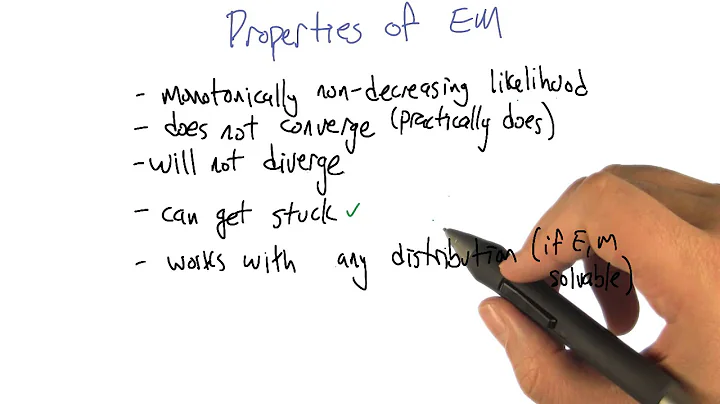 Properties of EM
- monotonically non-decreasing likelihood
- does not converge (practically does)
- will not diverge
- can get stuck ✓
- works with any distribution (if E, M
solvable)